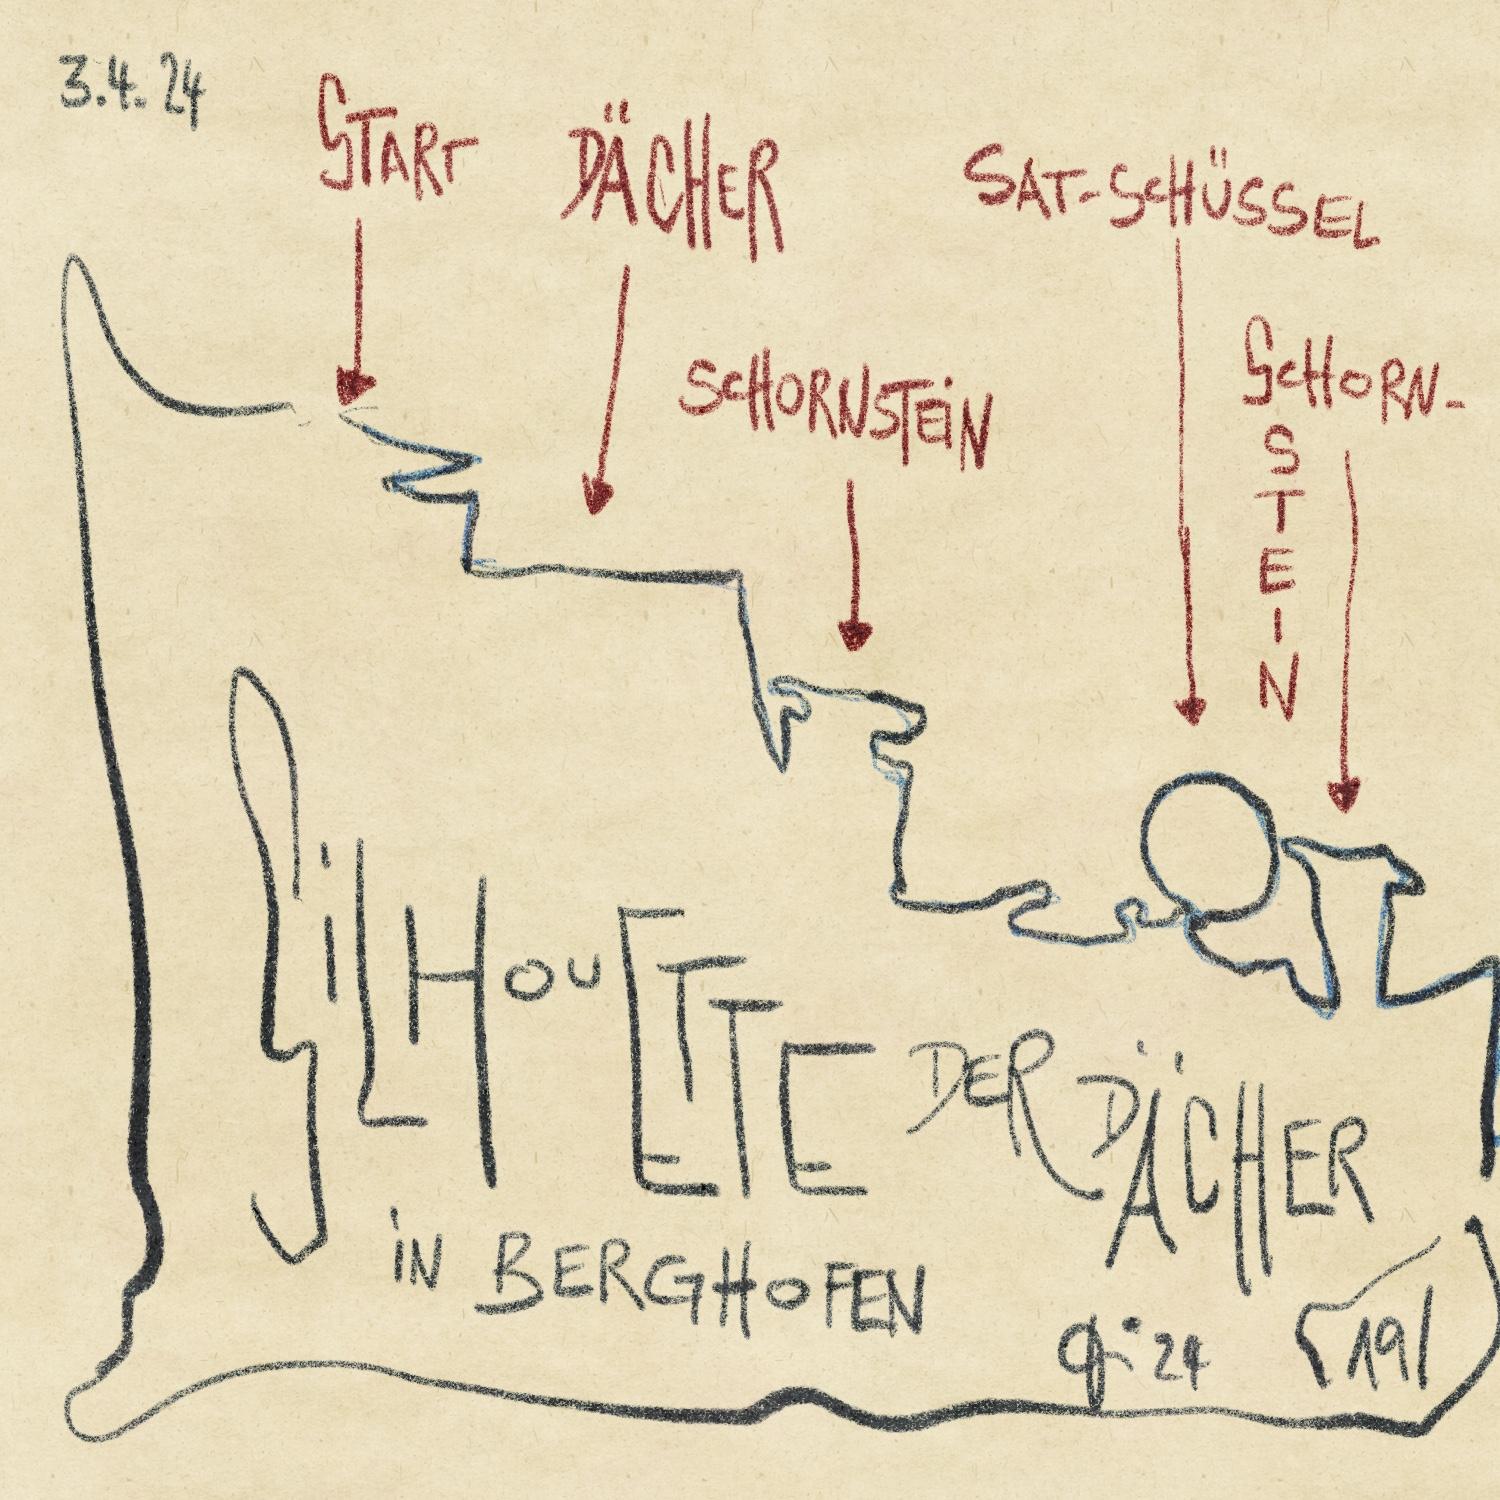 3.4.24
START
DÄCHER
SAT-SCHÜSSEL
SCHORNSTEIN
SCHORN-
STEIN
SILHOUETTE DER DÄCHER
IN BERGHOFEN
24
191